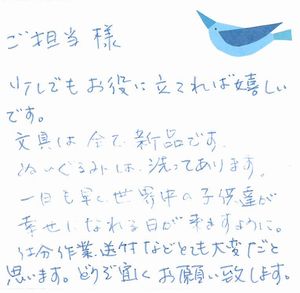 ご担当様
少しでもお役に立てれば嬉しい
です。
文具は全て新品です。
ぬいぐるみは、洗ってあります。
一日も早く世界中の子供達が
幸せになれる日が来ますように。
仕分作業、送付などとても大変だと
思います。どうぞ宜しくお願い致します。